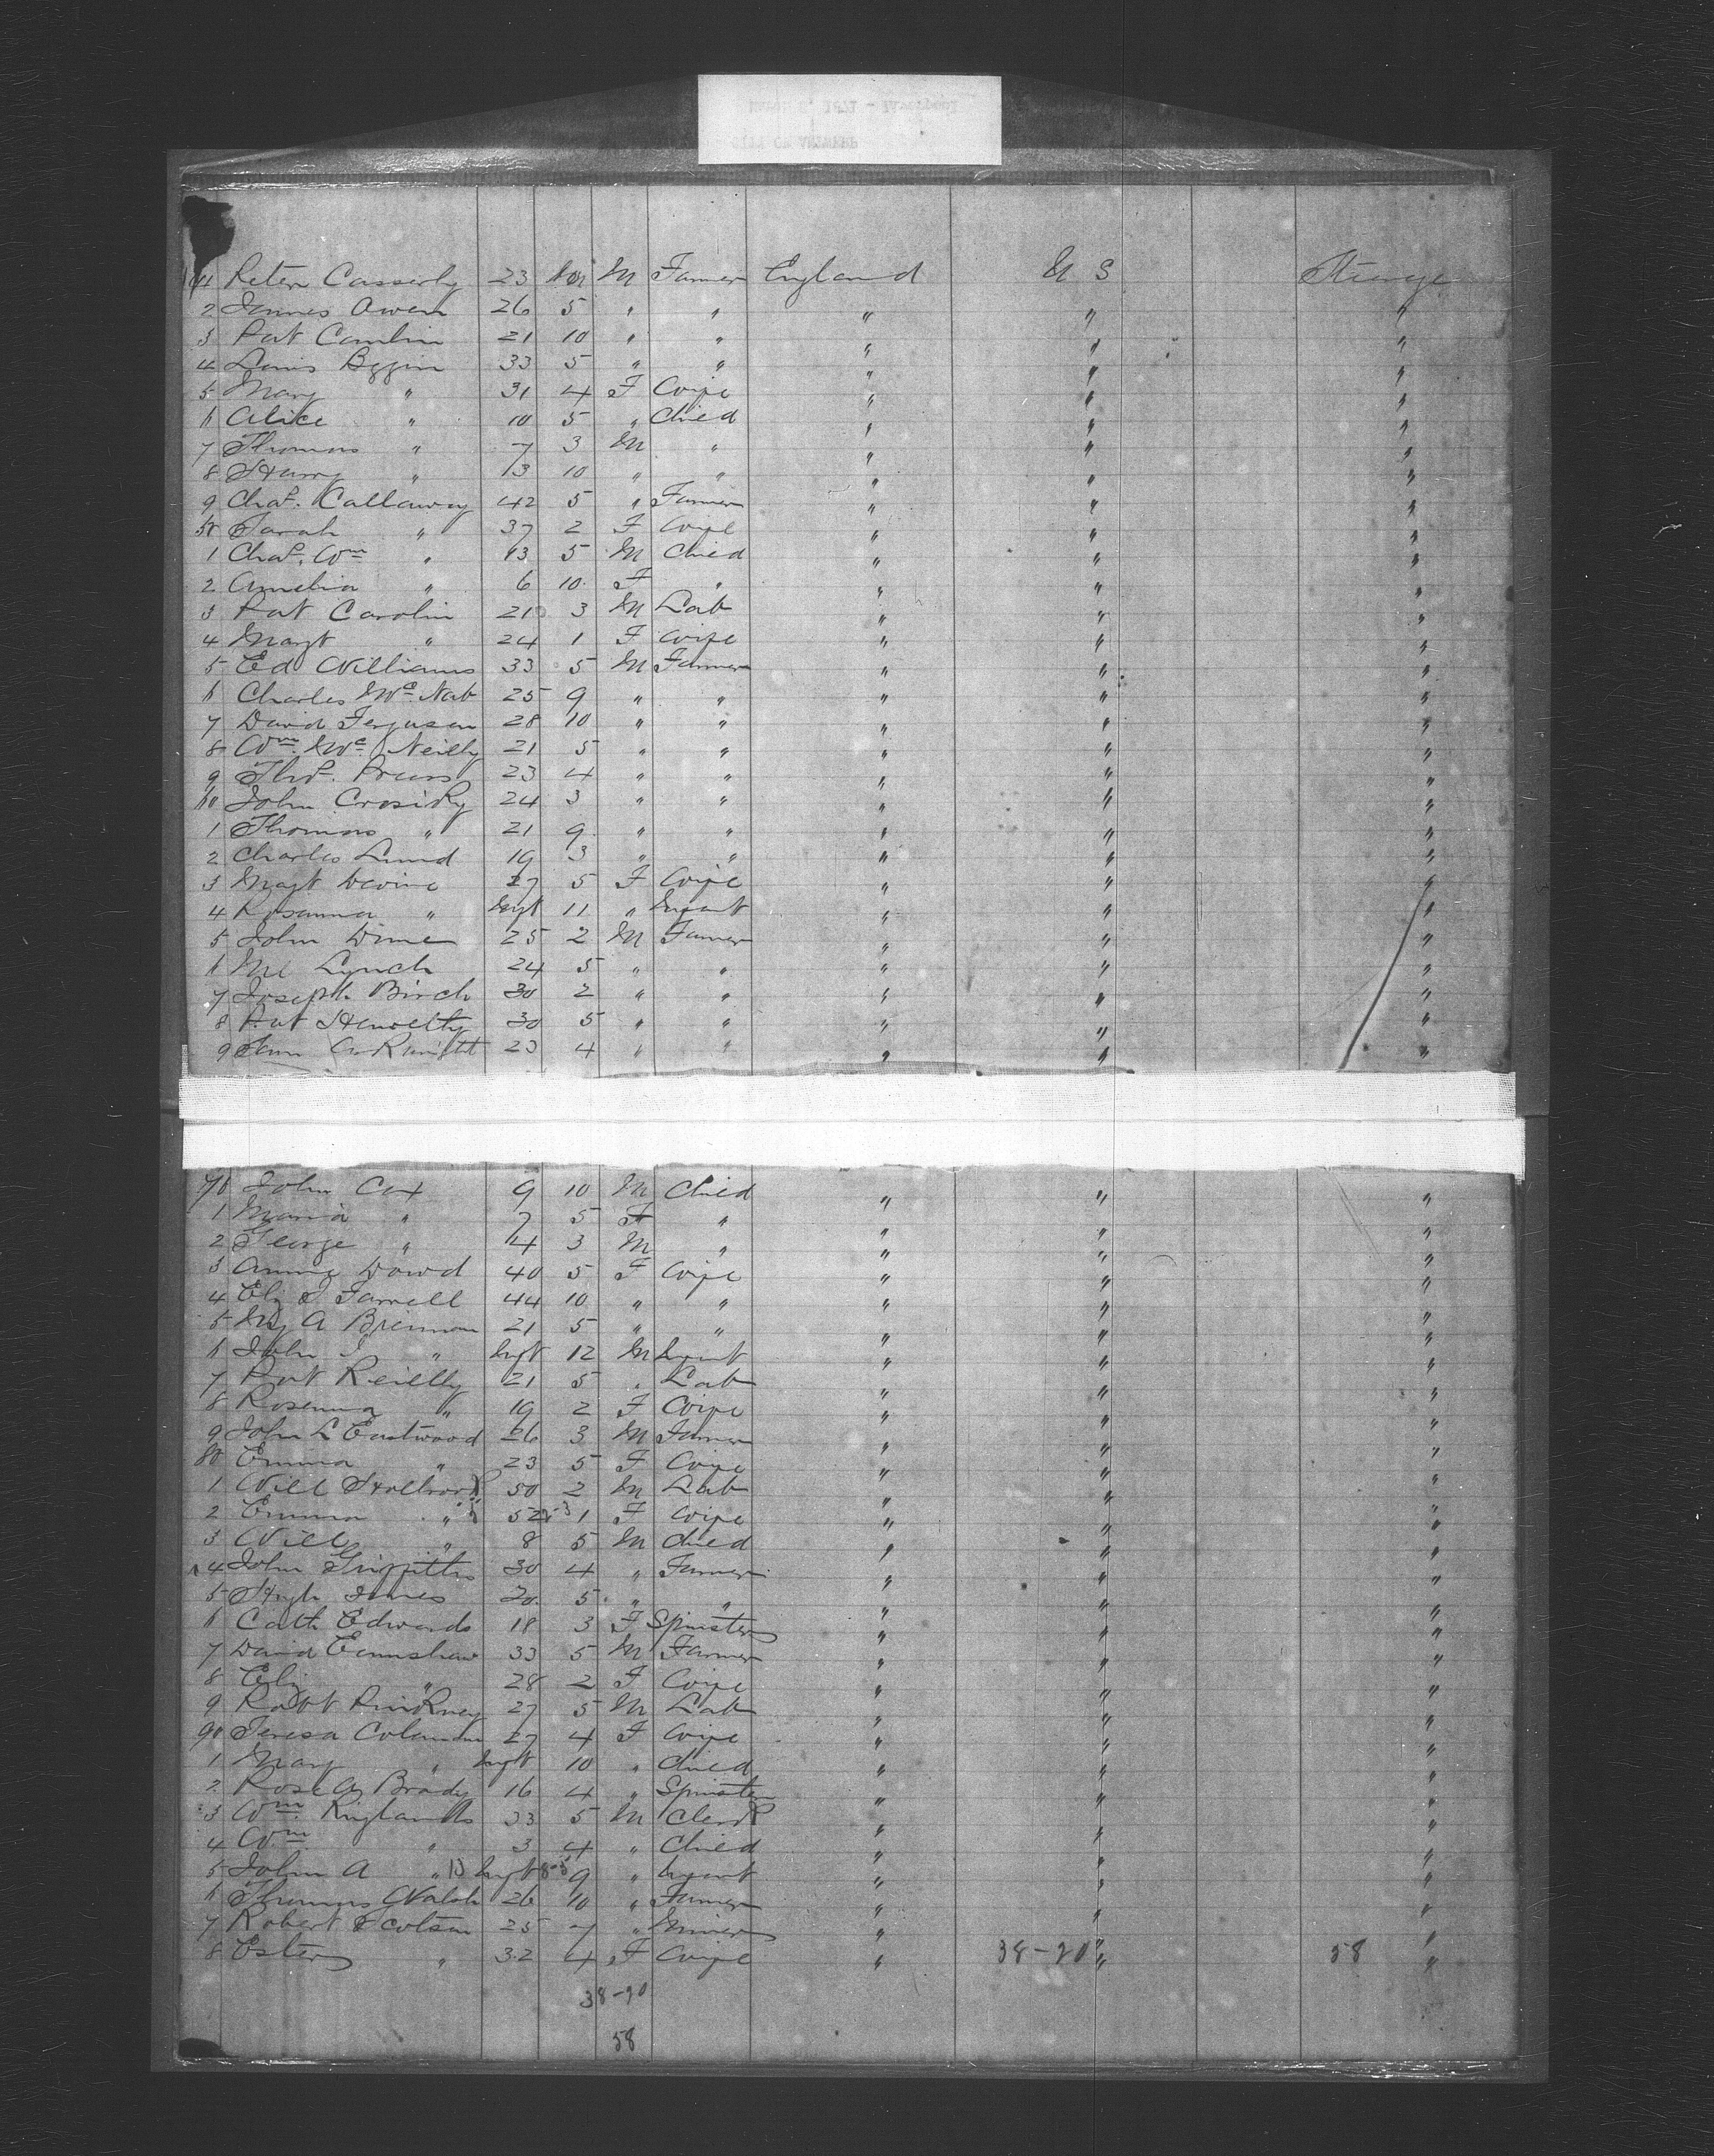 41 Peter Casserly 23 M Farmer England U S Steerage
2 James Owen 26 5 " " " " "
3 Pat Conlin 21 10 " " " " "
4 Louis 33 5 " " " " "
5 Mary " 31 4 F Wife " " "
6 Alice " 10 5 " Child " " "
7 Thomas " 7 3 M " " " "
8 Harry " 13 10 " " " " "
9 Chas. Callaway 42 5 " Farmer " " "
50 Sarah " 37 2 F Wife " " "
1 Chas. Wm " 13 5 M Child " " "
2 Amelia " 6 10 F " " " "
3 Pat Carolin 21 3 M Lab " " "
4 Margt " 24 1 F Wife " " "
5 Ed Williams 33 5 M Farmer " " "
6 Charles Mc Nab 25 9 " " " " "
7 David Ferguson 28 10 " " " " "
8 Wm Mc Neilly 21 5 " " " " "
9 Thos. 23 4 " " " " "
60 John 24 3 " " " " "
1 Thomas " 21 9 " " " " "
2 Charles Lund 19 3 " " " " "
3 Margt Devine 27 5 F Wife " " "
4 Rosanna " Inft 11 " Infant " " "
5 John 25 2 M Farmer " " "
6 Ml Lynch 24 5 " " " " "
7 Joseph Birch 30 2 " " " " "
8 Pat 30 5 " " " " "
9 23 4 " " " " "
70 John Cox 9 10 M Child " " "
1 Maria " 7 5 F " " " "
2 George " 4 3 M " " " "
3 Annie Dowd 40 5 F Wife " " "
4 Eliz J Farrell 44 10 " " " " "
5 My A Brennan 21 5 " " " " "
6 John J " Inft 12 M Infant " " "
7 Pat Reilly 21 5 " Lab " " "
8 Rosanna " 19 2 F Wife " " "
9 John L Eastwood 26 3 M Farmer " " "
80 Emma " 23 5 F Wife " " "
1 Will Holbrook 50 2 M Lab " " "
2 Emma " 52 1 F Wife " " "
3 Will " 8 5 M Child " " "
4 John Griffiths 30 4 " Farmer " " "
5 Hugh Jones 20 5 " " " " "
6 Cath Edwards 18 3 F Spinster " " "
7 David Earnshaw 33 5 M Farmer " " "
8 Eliz " 28 2 F Wife " " "
9 Robt Pinkney 27 5 M Lab " " "
90 Teresa Coleman 27 4 F Wife " " "
1 Mary " Inft 10 " Child " " "
2 Rose A Brady 16 4 " Spinster " " "
3 Wm Ringlands 33 5 M Clerk " " "
4 Wm " 3 4 " Child " " "
5 John A " Inft 9 " Infant " " "
6 Thomas Walsh 26 10 " Farmer " " "
7 Robert Scotson 25 7 " Miner " " "
8 Ester " 32 4 F Wife " 38-20 " 58 "
38-20
58